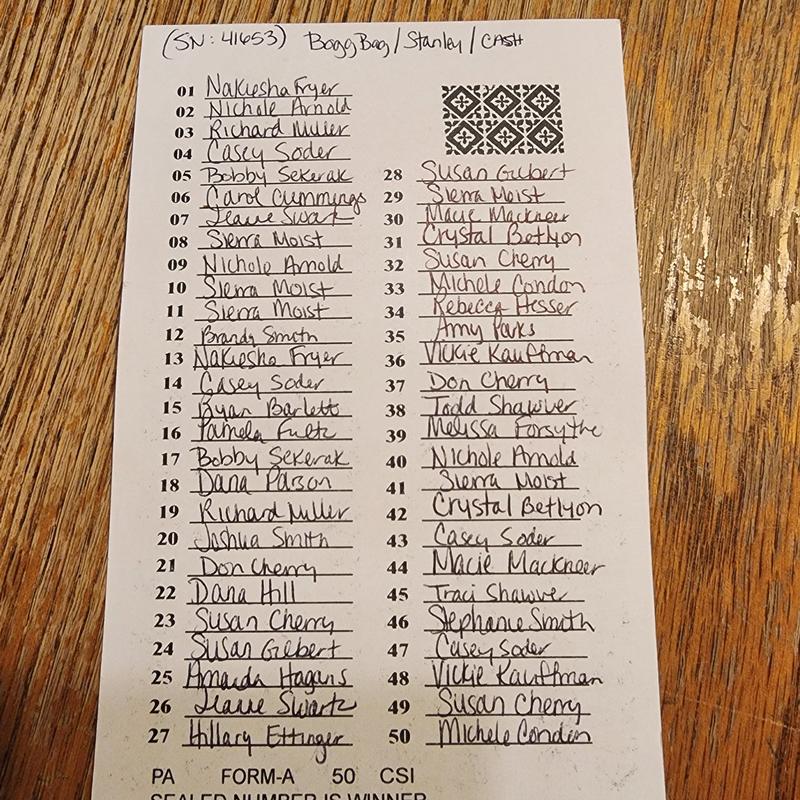 (SN: 41653) Bogg Bag / Stanley / CASH
01 Nakiesha Fryer
02 Nichole Arnold
03 Richard Miller
04 Casey Soder
05 Bobby Sekerak
06 Carol Cummings
07 Swartz
08 Sierra Moist
09 Nichole Arnold
10 Sierra Moist
11 Sierra Moist
12 Brandy Smith
13 Nakiesha Fryer
14 Casey Soder
15 Ryan Barlett
16 Pamela Fultz
17 Bobby Sekerak
18 Dana Parson
19 Richard Miller
20 Joshua Smith
21 Don Cherry
22 Dana Hill
23 Susan Cherry
24 Susan Gilbert
25 Amanda Hagans
26 Swartz
27 Hillary Ettinger
28 Susan Gilbert
29 Sierra Moist
30 Macie Mackneer
31 Crystal Bethyon
32 Susan Cherry
33 Michele Condon
34 Rebecca Hesser
35 Amy Parks
36 Vickie Kauffman
37 Don Cherry
38 Todd Shawver
39 Melissa Forsythe
40 Nichole Arnold
41 Sierra Moist
42 Crystal Bethyon
43 Casey Soder
44 Macie Mackneer
45 Traci Shawver
46 Stephanie Smith
47 Casey Soder
48 Vickie Kauffman
49 Susan Cherry
50 Michele Condon
PA FORM-A 50 CSI
SEALED NUMBER IS WINNER